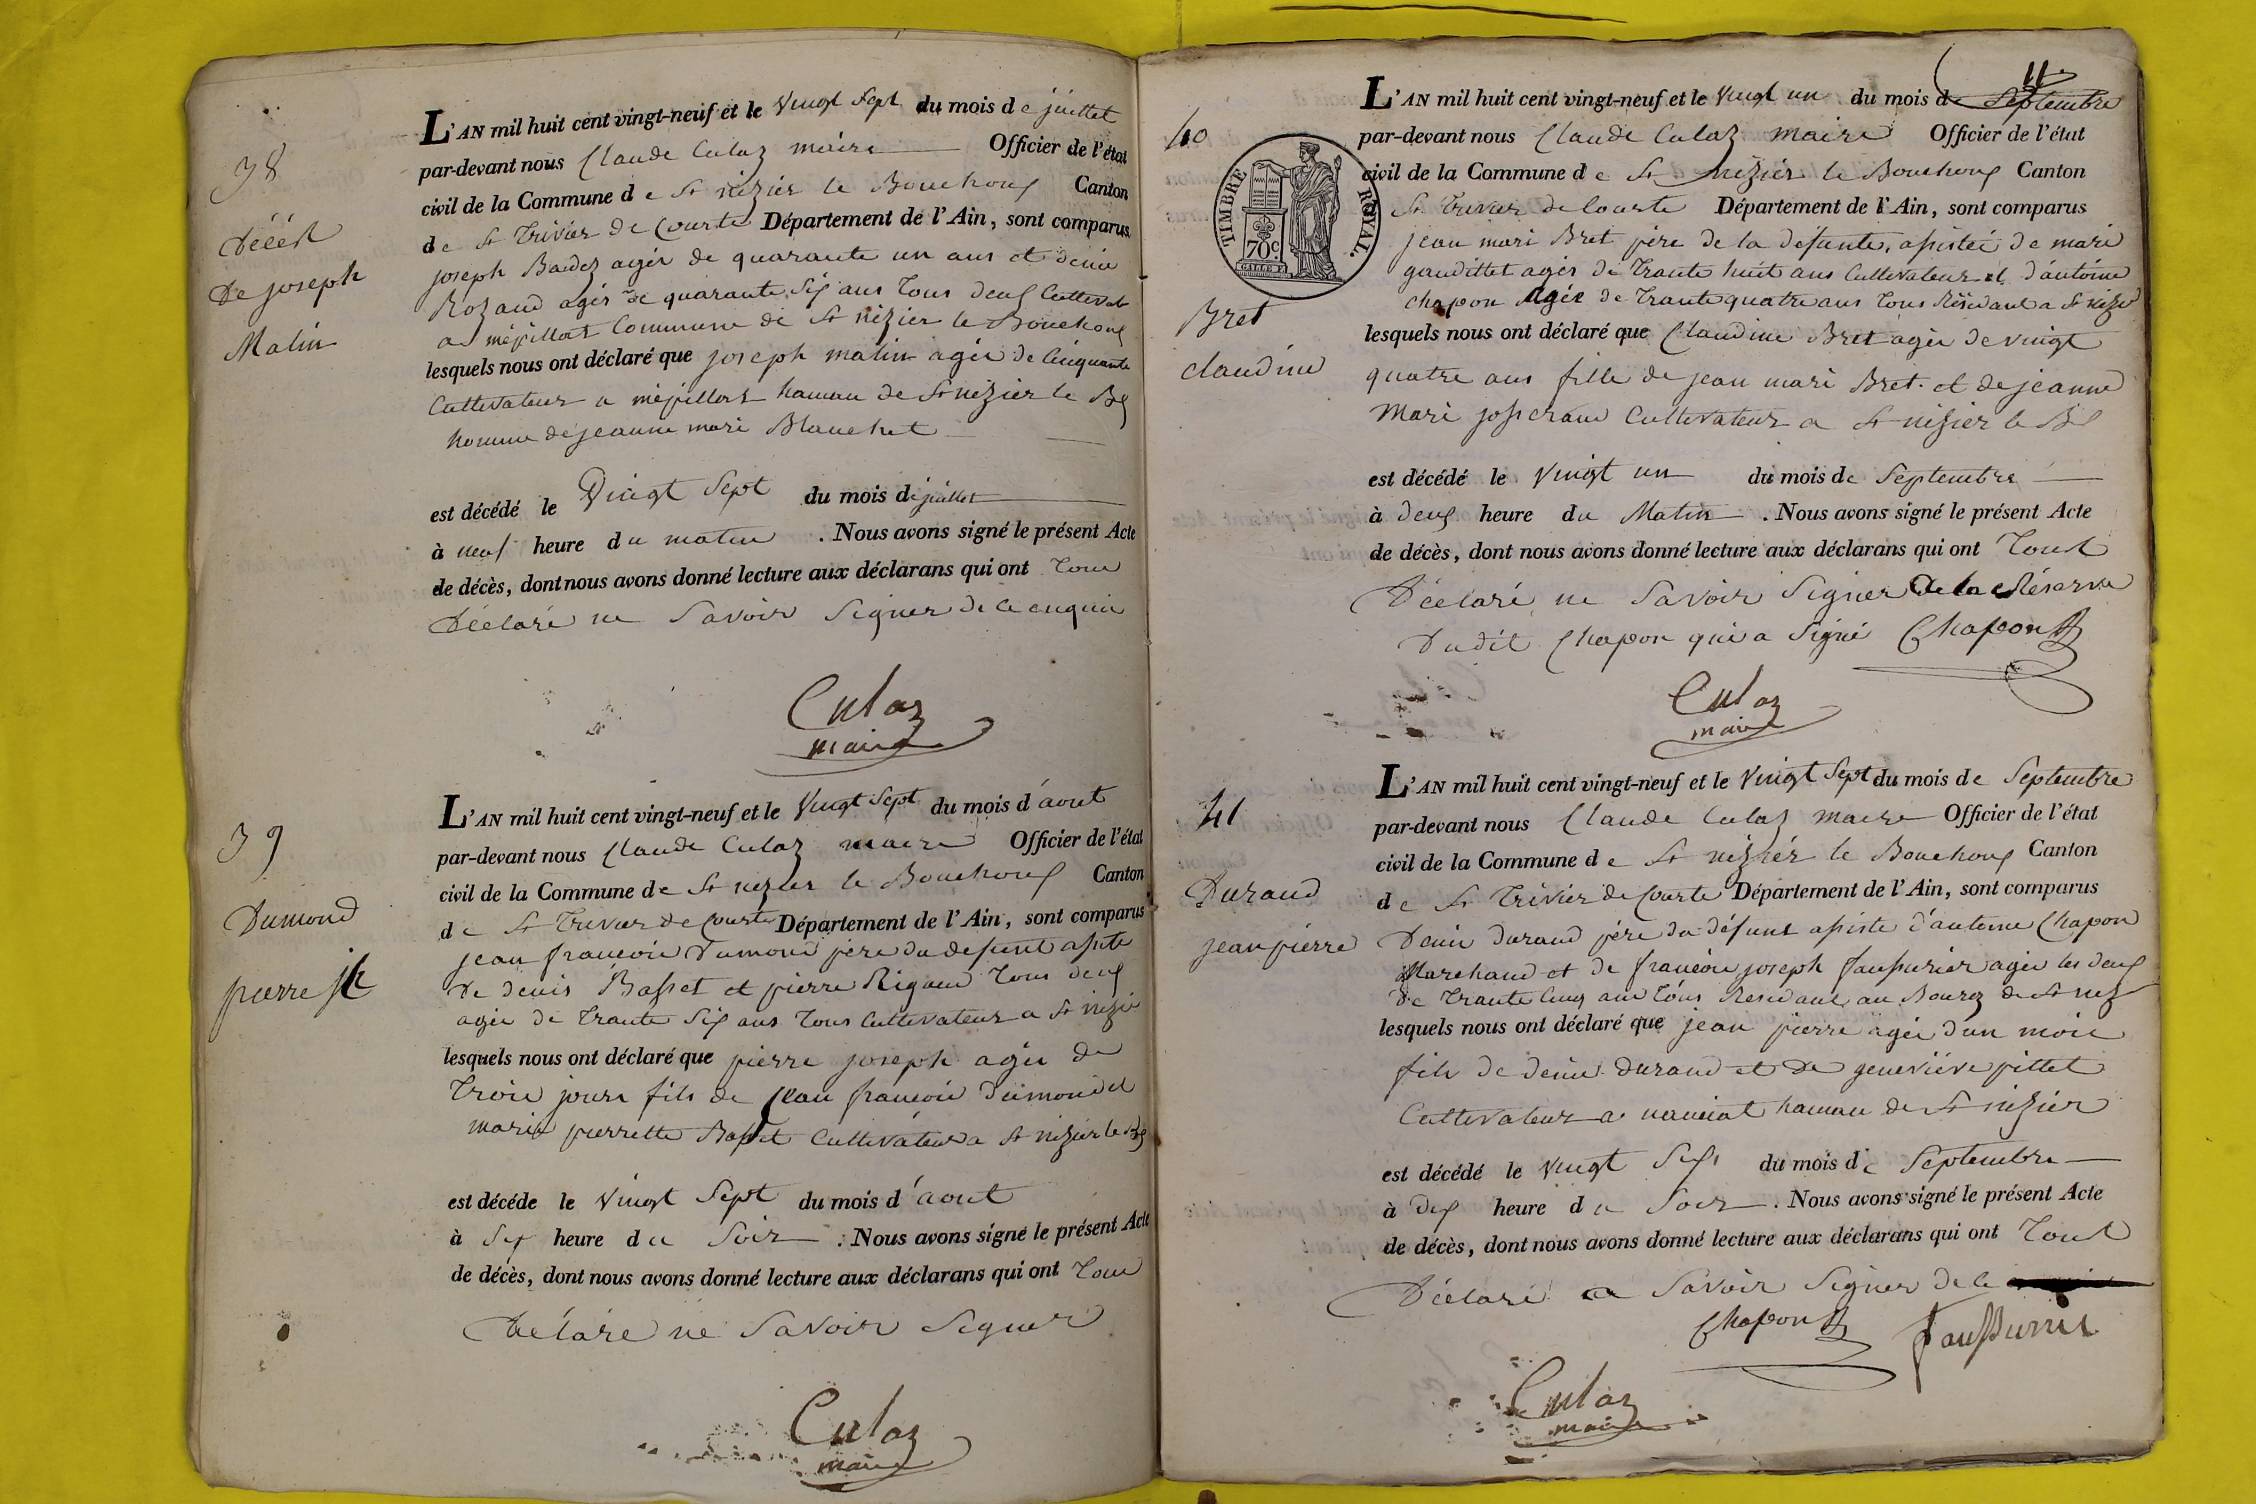 38
Décés
De joseph
Matin
L'AN mil huit cent vingt-neuf et le Vingt Sept du mois de juillet
par-devant nous Claude Culaz maire Officier de l'état
civil de la Commune de St nizier le Bouchoux Canton
de St Trivier de Courte Département de l'Ain, sont comparus
joseph agés de quarante un ans et denis
agés de quarante Six ans Tous deux Cultivat
a Commune de St nizier le Bouchoux
lesquels nous ont déclaré que joseph matin agés de Cinquante
Cultivateur a hamau de St nizier le Bx
homme de jeanne mari Blanchet
est décédé le Vingt Sept du mois de juillet
à neuf heure du matin . Nous avons signé le présent Acte
de décès, dont nous avons donné lecture aux déclarans qui ont Tous
Déclaré ne Savoir Signer de ce enquis
Culaz
maire
39
Dumond
pierre jh
L'AN mil huit cent vingt-neuf et le Vingt Sept du mois d'aout
par-devant nous Claude Culaz maire Officier de l'état
civil de la Commune de St nizier le Bouchoux Canton
de St Trivier de Courte Département de l'Ain, sont comparus
jean francois Dumond père du defunt assisté
De denis Basset et pierre Rigaud Tous deux
agés de Trante Six ans Tous Cultivateur a St nizié
lesquels nous ont déclaré que pierre joseph agés de
Trois jours fils de jean francois Dumond et
marie pierrette Basset Cultivateur a St nizier le Bx
est décéde le Vingt Sept du mois d'aout
à Sex heure du Soir . Nous avons signé le présent Acte
de décès, dont nous avons donné lecture aux déclarans qui ont Tous
Déclaré ne Savoir Signer
Culaz
maire
11
40
TIMBRE ROYAL.
70c.
Bret
claudine
L'AN mil huit cent vingt-neuf et le Vingt un du mois de Septembre
par-devant nous Claude Culaz maire Officier de l'état
civil de la Commune de St nizier le Bouchoux Canton
St Trivier de Courte Département de l'Ain, sont comparus
jean mari Bret père de la defunte, assisteé de mari
gaudillet agés de Trante huit ans Cultivateur et d'antoine
chapon agée de Trante quatre ans Tous Résidant a St nizié
lesquels nous ont déclaré que Claudine Bret agée de vingt
quatre ans fille de jean mari Bret et de jeanne
Mari josserand Cultivateur a St nizier le Bx
est décédé le Vingt un du mois de Septembre
à deux heure du Matin . Nous avons signé le présent Acte
de décès, dont nous avons donné lecture aux déclarans qui ont Tous
Déclaré ne Savoir Signer de la Réserve
Dudit Chapon qui a Signé Chapon
Culaz
maire
41
Durand
jean pierre
L'AN mil huit cent vingt-neuf et le Vingt Sept du mois de Septembre
par-devant nous Claude Culaz maire Officier de l'état
civil de la Commune de St nizier le Bouchoux Canton
de St Trivier de Courte Département de l'Ain, sont comparus
Denis durand père du défunt assisté d'antoine Chapon
Marchand et de francois joseph agés les deux
De Trante Cinq ans Tous Residant au Bourg de St niz
lesquels nous ont déclaré que jean pierre agée d'un mois
fils de denis durand et De geneviéve pillet
Cultivateur a hamau de St nizier
est décédé le Vingt Sept du mois de Septembre
à Dix heure du Soir . Nous avons signé le présent Acte
de décès, dont nous avons donné lecture aux déclarans qui ont Tous
Déclaré Savoir Signer de ce
Chapon
Culaz
maire